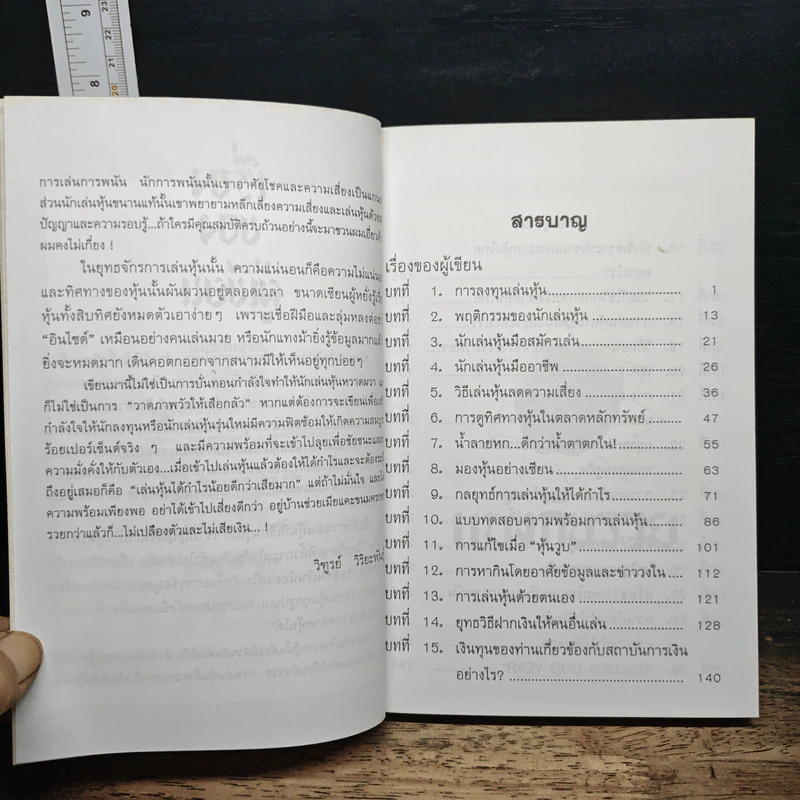 9
8
23
22
21
20
การเล่นการพนัน นักการพนันนั้นเขาอาศัยโชคและความเสี่ยงเป็นแกน
ส่วนนักเล่นหุ้นขนานแท้นั้นเขาพยายามหลีกเลี่ยงความเสี่ยงและเล่นหุ้นด้วย
ปัญญาและความรอบรู้...ถ้าใครมีคุณสมบัติครบถ้วนอย่างนี้จะมาชวนผมเอี่ยวด้วย
ผมคงไม่เกี่ยง !
ในยุทธจักรการเล่นหุ้นนั้น ความแน่นอนก็คือความไม่แน่นอน
และทิศทางของหุ้นนั้นผันผวนอยู่ตลอดเวลา ขนาดเซียนผู้หยั่งรู้เรื่อง
หุ้นทั้งสิบทิศยังหมดตัวเอาง่ายๆ เพราะเชื่อฝีมือและลุ่มหลงต่อข้อ
“อินไซด์” เหมือนอย่างคนเล่นมวย หรือนักแทงม้ายิ่งรู้ข้อมูลมากแล้ว
ยิ่งจะหมดมาก เดินคอตกออกจากสนามมีให้เห็นอยู่ทุกบ่อยๆ !
เขียนมานี้ไม่ใช่เป็นการบั่นทอนกำลังใจทำให้นักเล่นหุ้นหวาดผวา
ก็ไม่ใช่เป็นการ “วาดภาพวัวให้เสือกลัว” หากแต่ต้องการจะเขียนเพื่อ
กำลังใจให้นักลงทุนหรือนักเล่นหุ้นรุ่นใหม่มีความฟิตซ้อมให้เกิดความสมบูรณ์
ร้อยเปอร์เซ็นต์จริง ๆ และมีความพร้อมที่จะเข้าไปลุยเพื่อชัยชนะและ
ความมั่งคั่งให้กับตัวเอง...เมื่อเข้าไปเล่นหุ้นแล้วต้องให้ได้กำไรและจะต้อง
ถึงอยู่เสมอก็คือ “เล่นหุ้นได้กำไรน้อยดีกว่าเสียมาก” แต่ถ้าไม่มั่นใจ และ
ความพร้อมเพียงพอ อย่าได้เข้าไปเสี่ยงดีกว่า อยู่บ้านช่วยเมียแคะขนมครก
รวยกว่าแล้วก็...ไม่เปลืองตัวและไม่เสียเงิน...!
วิฑูรย์ วิริยะพันธุ์
สารบาญ
เรื่องของผู้เขียน
บทที่ 1. การลงทุนเล่นหุ้น 1
บทที่ 2. พฤติกรรมของนักเล่นหุ้น 13
บทที่ 3. นักเล่นหุ้นมือสมัครเล่น 21
บทที่ 4. นักเล่นหุ้นมืออาชีพ 26
บทที่ 5. วิธีเล่นหุ้นลดความเสี่ยง 36
บทที่ 6. การดูทิศทางหุ้นในตลาดหลักทรัพย์ 47
บทที่ 7. น้ำลายหก...ดีกว่าน้ำตาตกใน! 55
บทที่ 8. มองหุ้นอย่างเซียน 63
บทที่ 9. กลยุทธ์การเล่นหุ้นให้ได้กำไร 71
บทที่ 10. แบบทดสอบความพร้อมการเล่นหุ้น 86
บทที่ 11. การแก้ไขเมื่อ “หุ้นวูบ” 101
บทที่ 12. การหากินโดยอาศัยข้อมูลและข่าววงใน 112
บทที่ 13. การเล่นหุ้นด้วยตนเอง 121
บทที่ 14. ยุทธวิธีฝากเงินให้คนอื่นเล่น 128
บทที่ 15. เงินทุนของท่านเกี่ยวข้องกับสถาบันการเงิน
อย่างไร? 140